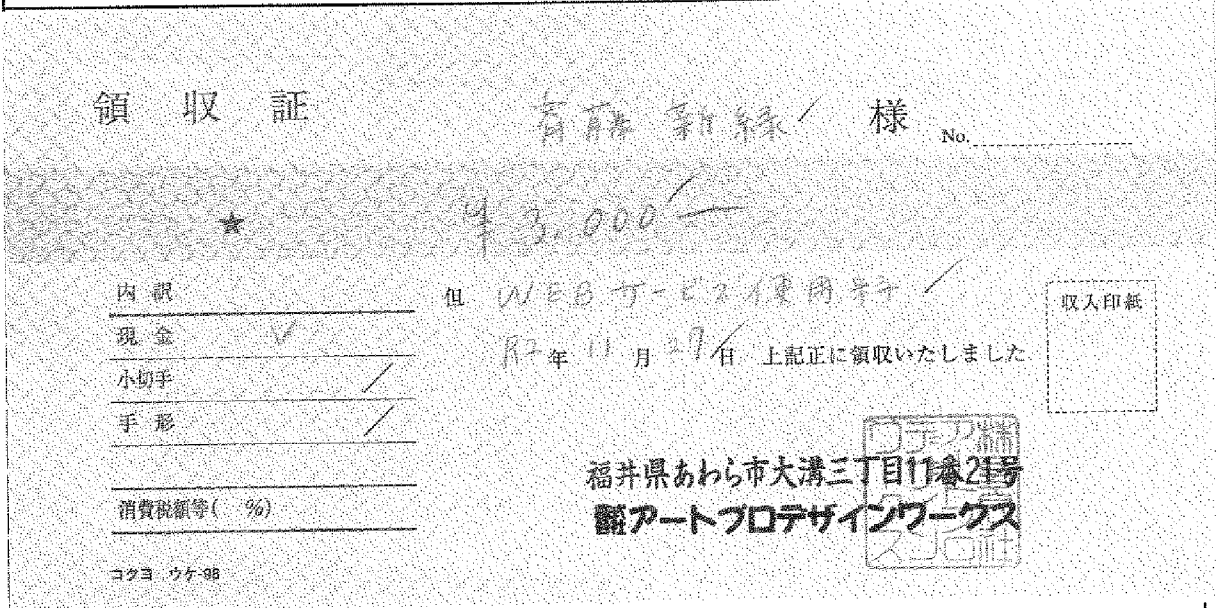 領収証 斉藤 新緑 様 No.
★ ¥3,000
内訳
現金 V
小切手
手形
消費税額等( %)
コクヨ ウケ-98
但 WEBサービス使用料
R2年 11月 27日 上記正に領収いたしました
収入印紙
福井県あわら市大溝三丁目11番21号
アートプロデザインワークス